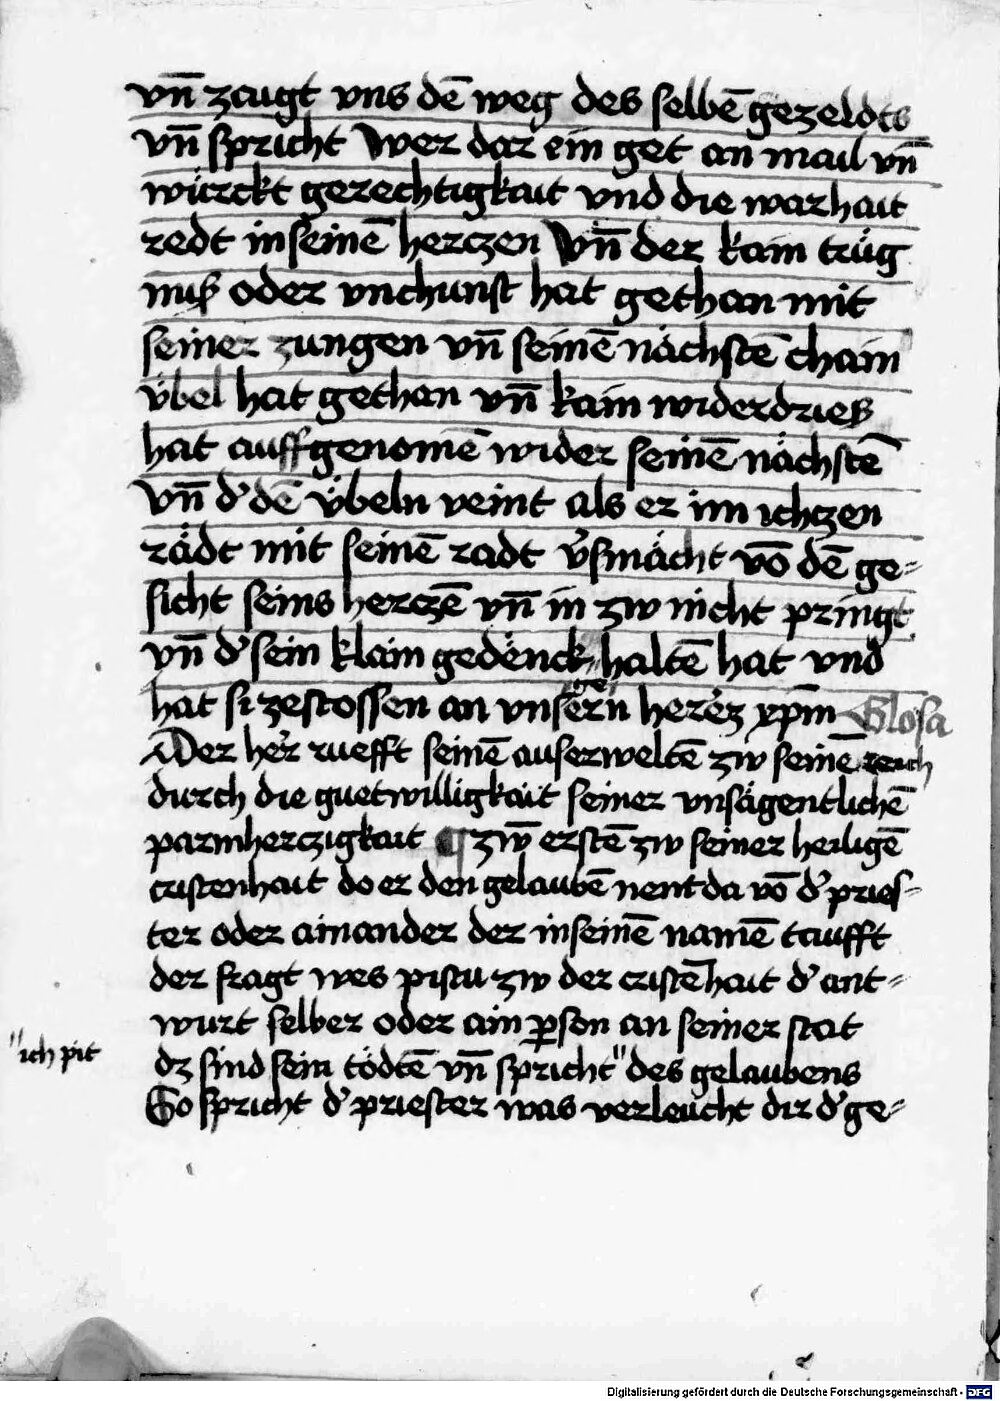 vn̄ zaugt vns dē weg des selbē gezeldts
vn̄ spricht Wer dar ein get an mail vn̄
würckt gerechtigkait vnd die warhait
redt in seinē herczen Vn̄ der kain trüg
nuß oder vnchunst hat gethan mit
seiner zungen vn̄ seinē nächstē chain
v̈bel hat gethan vn̄ kain widerdrieß
hat auffgenomē wider seinē nächstē
Vn̄ d' dē v̈beln veint als er im ichczen
rädt mit seinē radt v'smächt vō dē ge⸗
sicht seins herczē vn̄ in zw nicht pringt
vn̄ d' sein klain gedënck⸗ haltē hat vnd
ge
hat si zestossen an vnsern herrē xp̄m Glosa
Der her' ruefft seinē auserweltē zw seinē reich
durch die guetwilligkait seiner vnsägentlichē
parmherczigkait ¶ zw̄ erstē zw seiner heiligē
cristenhait do er den gelaubē nent da vō d' pries⸗
ter oder ainander der in seinē namē taufft
der fragt wes pistu zw der cristēhait d' ant⸗
wurt selber oder ain ꝑson an seiner stat
"ich pit
dz sind sein tödtē vn̄ spricht" des gelaubens
So spricht d' priester was verleucht dir d' ge⸗
Digitalisierung gefördert durch die Deutsche Forschungsgemeinschaft - DFG